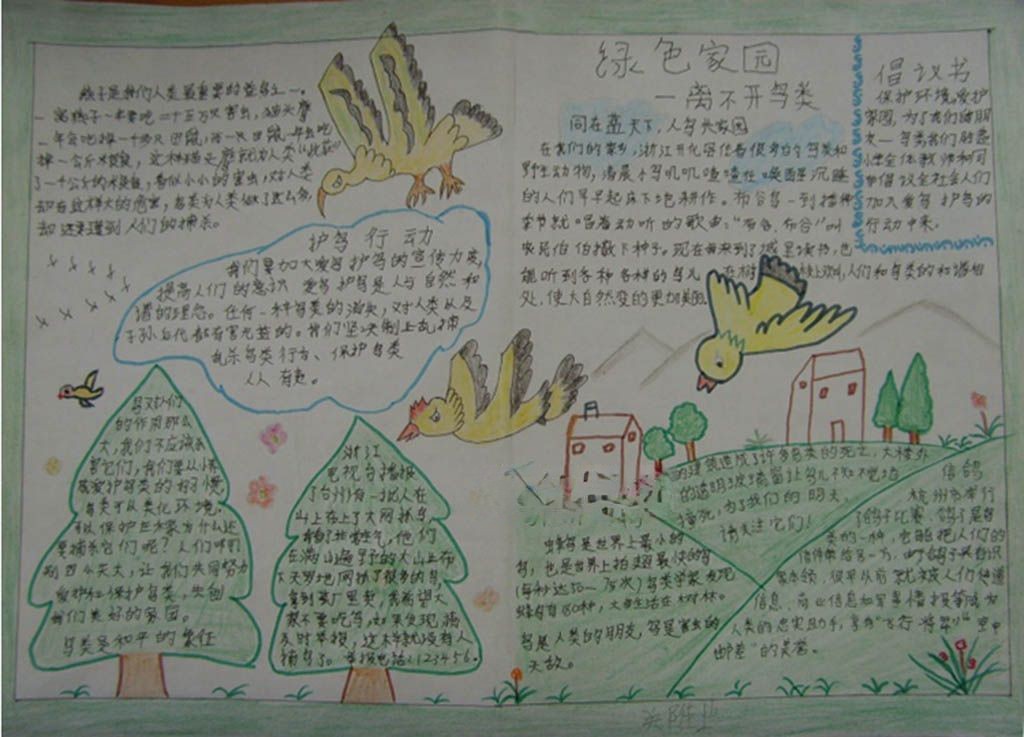 燕子是我们人类最重要的益鸟之一。
一窝燕子一年要吃二十五万只害虫，猫头鹰
一年会吃掉一千多只田鼠，而一只田鼠一年会吃
掉一公斤米粮食，这样猫头鹰就为人类"抢救"
了一千公斤的米粮食，看似小小的害虫，对人类
却有这样大的危害，鸟类为人类做了这么多
却还要遭到人们的捕杀。
护鸟行动
我们要加大爱鸟护鸟的宣传力度，
提高人们的意识 爱鸟护鸟是人与自然和
谐的理念。任何一种鸟类的消失，对人类以及
子孙后代都有害无益的。我们坚决制止乱捕
乱杀鸟类行为、保护鸟类
人人有责。
鸟对人们
的作用那么
大，我们不应该杀
害它们，我们要从小养
成爱护鸟类的好习惯
鸟类是和平的象征
浙江
电视台播报
了台州有一批人在
山上布上了大网抓鸟，
在满山遍野的大山上布
下天罗地网抓了很多的鸟，
大家不要吃鸟，如果发现，请
及时举报，这样就没有人
捕鸟了。举报电话：123456.
绿色家园
一离不开鸟类
同在蓝天下，人鸟共家园
在我们的家乡，浙江开化居住着很多白个鸟类和
野生动物，清晨小鸟叽叽喳喳在唤醒沉睡
的人们早早起床下地耕作。布谷鸟一到播种
季节就唱着动听的歌声："布谷、布谷"叫
农民伯伯撒下种子。现在我来到了城里读书，也
能听到各种各样的鸟儿 在树 枝上欢叫，人们和鸟类的和谐相
处，使大自然变的更加美丽。
倡议书
保护环境，爱护
家园，为了我们的朋
友一鸟类我们胜
小学全体教师和同
学倡议全社会人们
加入爱鸟护鸟的
行动中来。
的建筑造成了许多鸟类的死亡，大楼外
的透明玻璃窗让鸟儿不知不觉地
撞死，为了我们的明天，
请关注它们！
蜂鸟是世界上最小的
鸟，也是世界上拍翅最快的鸟
(每秒达50－75次)鸟类学家发现
蜂鸟有 种，大都生活在树林。
鸟是人类的朋友，鸟是害虫的
天敌。
信鸽
杭州市举行
了鸽子比赛、鸽子是鸟
类的一种，它能把人们的
信件带给另一方，由于鸽子具有识
巢本领，很早以前就被人们传递
信息、商业信息和军事情报等成为
人类的忠实助手，享有"飞行将军""空中
邮差"的美誉。